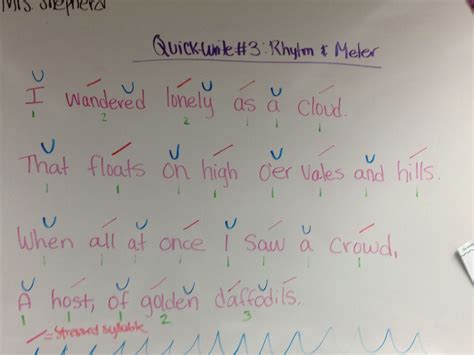 Mrs Shepherd
Quick-Write #3: Rhytm & Meter
I wandered lonely as a cloud.
1 2 2 1 1 1
That floats on high o'er vales and hills.
1 1 1 1 1 1 1 1
When all at once I saw a crowd,
1 1 1 1 1 1 1 1
A host, of golden daffodils.
1 1 1 2 3
/ = Stressed syllable